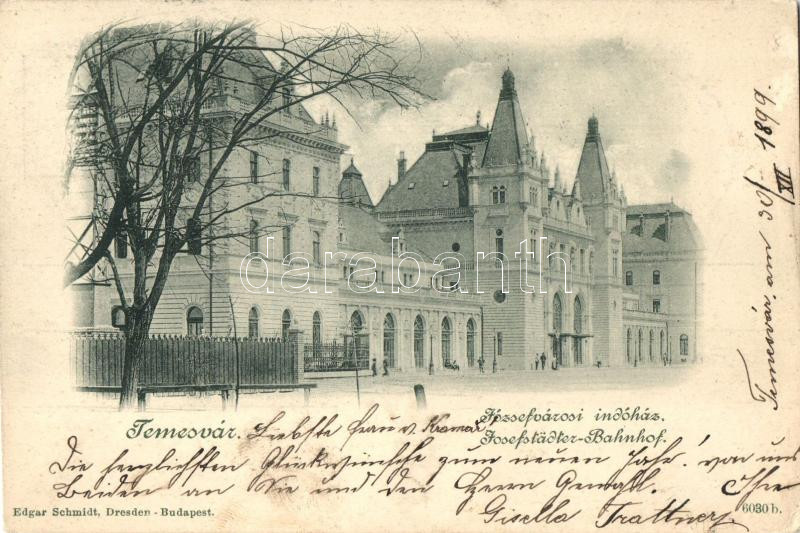 Temesvár, am 30/XII 1899
darabanth.com
Temesvár.
Józsefvárosi indóház.
Josefstädter-Bahnhof.
Liebste Frau v. Kramar,
Die herzlichsten Glückwünsche zum neuen Jahr! von uns
Beiden an Sie und den Herrn Gemahl. Ihre
Gisella Trattner
Edgar Schmidt, Dresden - Budapest.
6030 b.